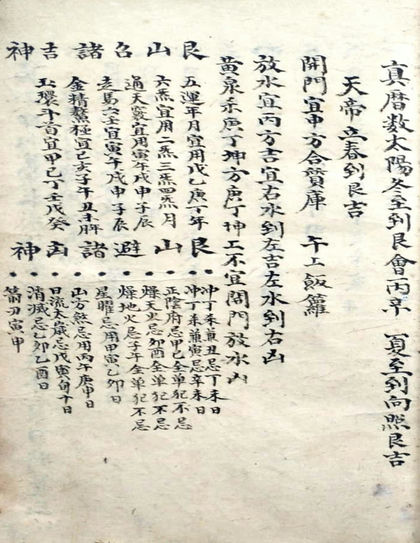 真暦数太陽冬至到艮會丙辛 夏至到向照艮吉
天帝立春到艮吉
開門宜申方合質庫 午上飯籮
放水宜丙方吉宜右水到左吉左水到右凶
黄泉乘庚丁坤方庚丁坤上不宜開門放水凶
艮山名諸吉神
五運年月宜用戊乙庚丁年
六炁宜用二炁三炁四炁月
通天竅宜用寅午戌申子辰
走馬六壬宜寅午戌申子辰
金精鰲極宜己亥子午丑未
玉環斗首宜甲己丁壬戊癸
艮山避諸凶神
冲丁未兼丑忌丁未日
冲丁未兼寅忌辛未日
正陰府忌甲己全單犯不忌
燥天火忌卯酉全單犯不忌
燥地火忌子午全單犯不忌
星曜忌用甲寅乙卯日
山方煞忌用丙午庚申日
日流太歲忌戊寅旬十日
消滅忌乙卯乙酉日
箭刃寅甲